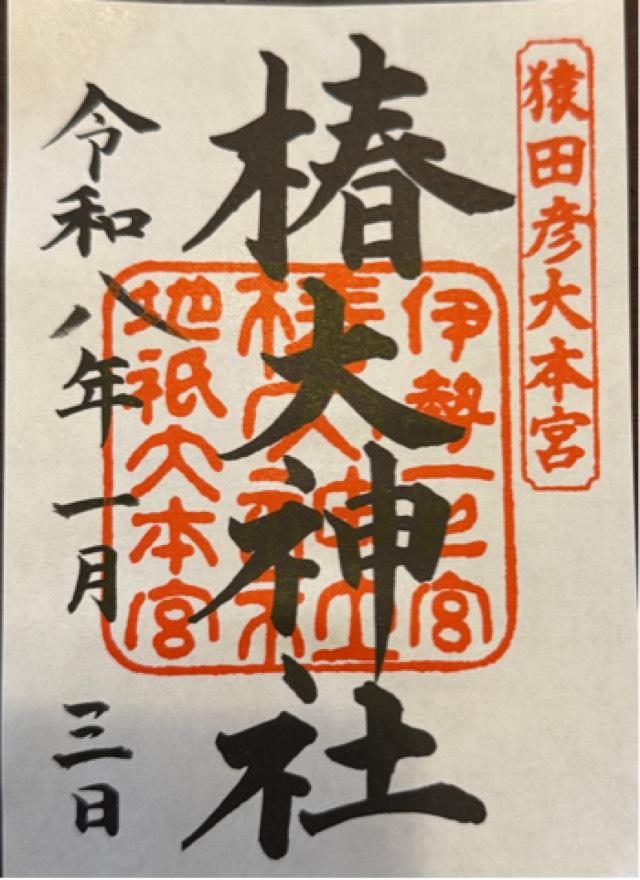 猿田彦大本宮
椿大神社
伊勢一之宮
椿大神社
地祇大本宮
令和八年一月三日